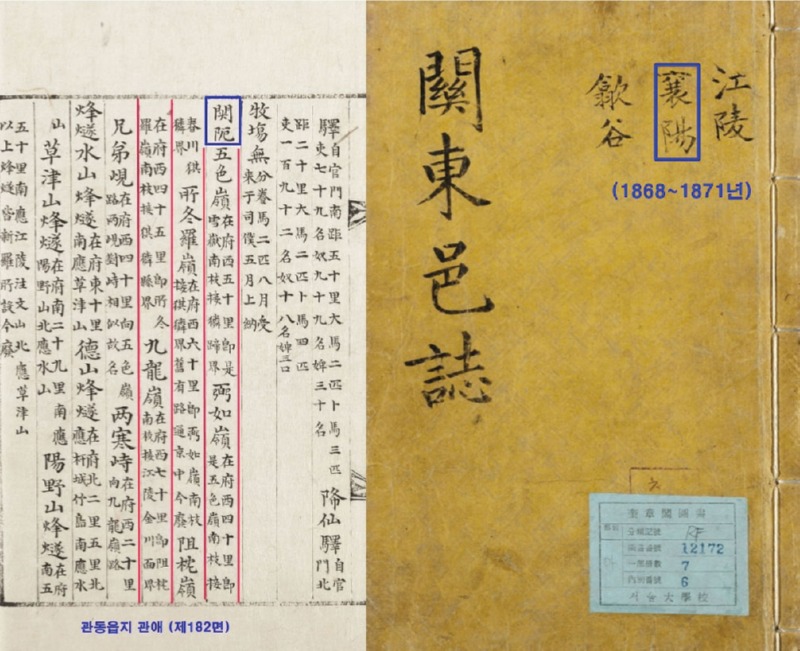 驛自官門南距五十里大馬二匹卜馬三匹
驛吏七十九名奴九十九名婢三十名 降仙驛自官門北
距二十里大馬二匹卜馬四匹
吏一百九十二名奴十八名婢三口
牧塲無分養馬二匹八月受来于司僕五月上納
関阨五色嶺在府西五十里卽是雪嶽南枝接獜蹄界弼如嶺在府西四十里卽是五色嶺南枝接
春川猉獜界所冬羅嶺在府西六十里卽弼如嶺南枝接猉獜界舊有路通京中今廢阻枕嶺
在府西四十五里卽所冬羅嶺南枝接猉獜縣界九龍嶺在府西七十里卽阻枕嶺南枝接江陵金川面界
兄弟峴在府西四十里向五色嶺路两峴對峙相似故名两寒峙在府西二十里向九龍嶺路
烽燧水山烽燧在府東十里南應草津山德山烽燧在府北二里五里北應杆城竹島南應水
山草津山烽燧在府南二十九里南應陽野山北應水山陽野山烽燧在府南五
五十里南應江陵注文山北應草津山
以上烽燧皆新羅所設今廢
관동읍지 관애 (제182면)
江陵
襄陽
歙谷
(1868~1871년)
關東邑誌
奎章閣圖書
分類記號 RF
圖書番號 12172
一部冊數 7
內別番號 6
서울大學校